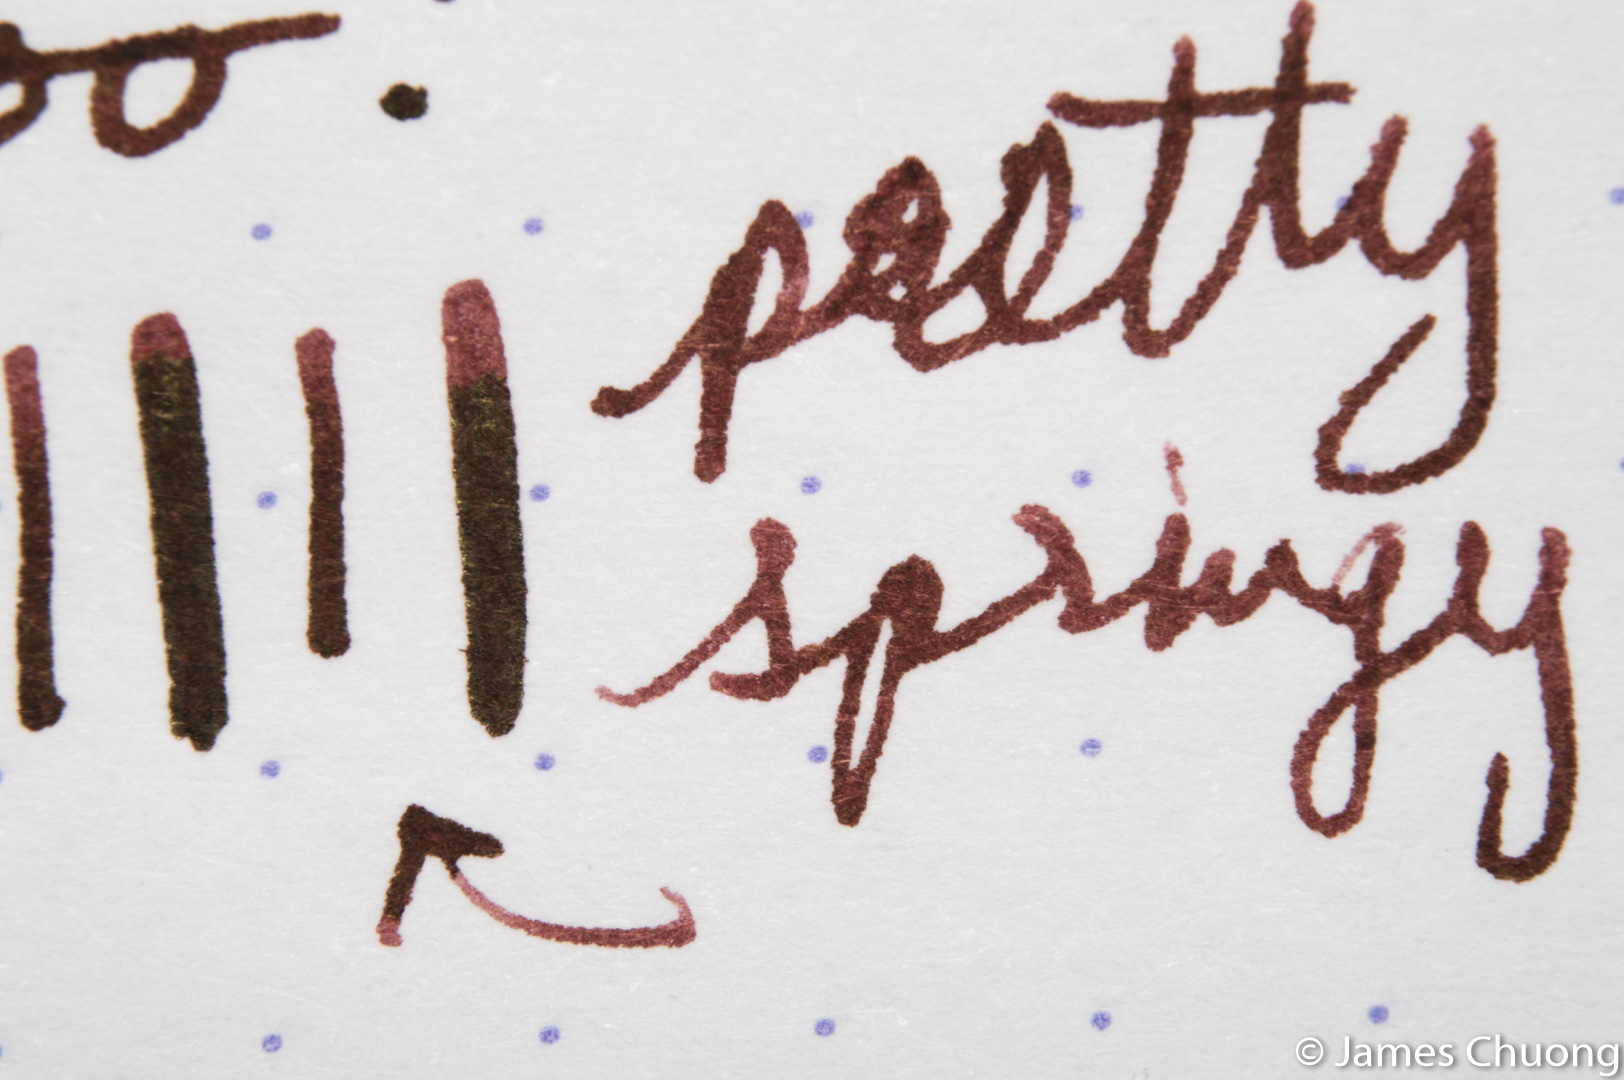 pretty
springy
© James Chuong